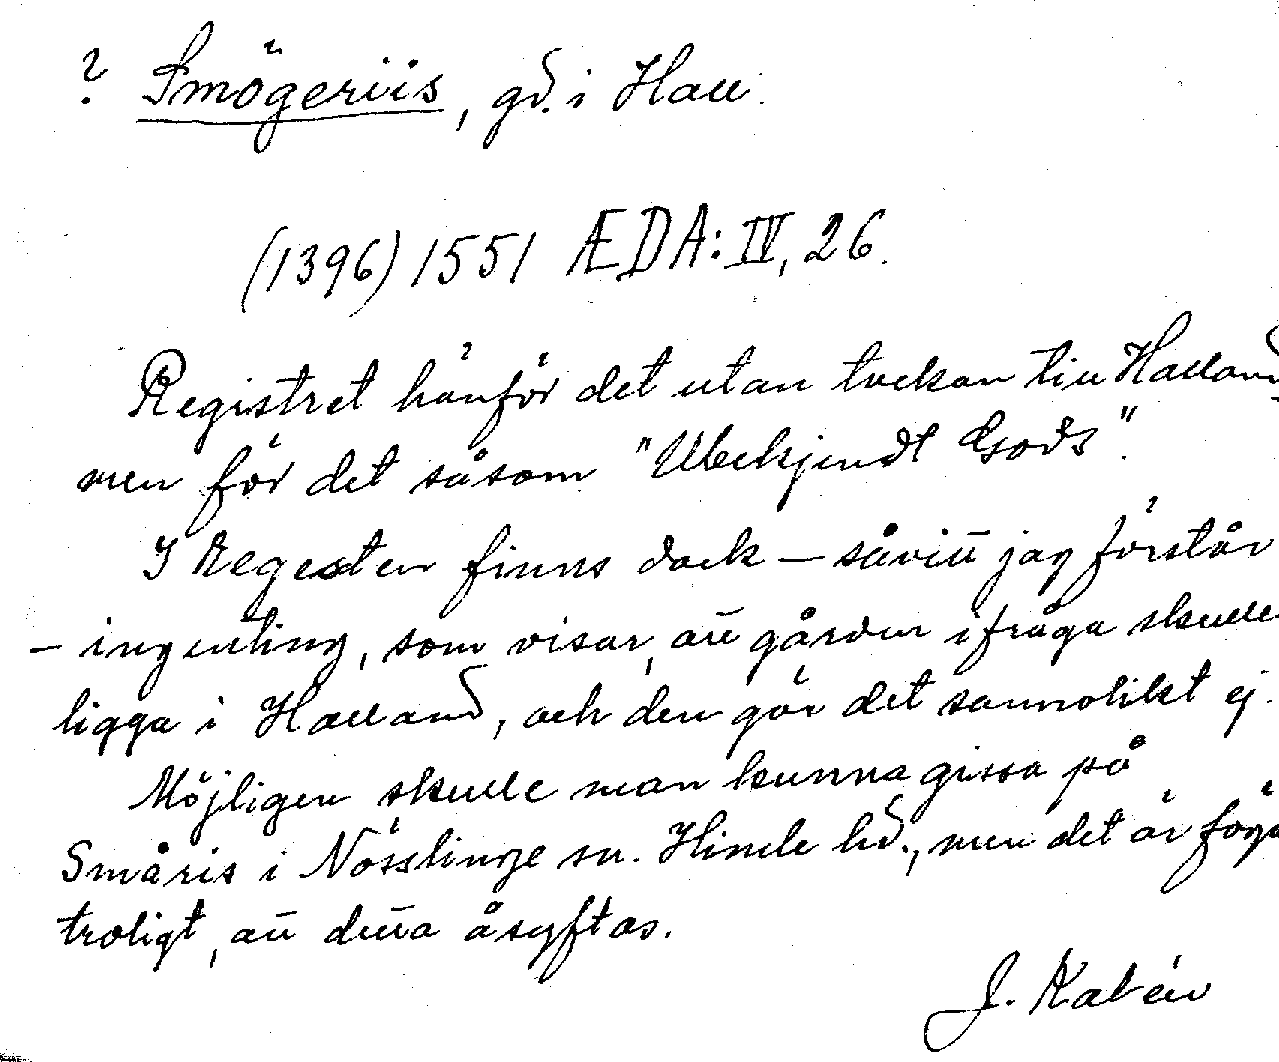 ? Smögeriis, gd. i Hall.
(1396) 1551 ÆDA: IV, 26.
Registret hänför det utan tvekan till Halland
men för det såsom "Ubekjendt Gods".
I Regesten finns dock – såvitt jag förstår
– ingenting, som visar, att gården ifråga skulle
ligga i Halland, och den gör det sannolikt ej.
Möjligen skulle man kunna gissa på
Småris i Nösslinge sn. Himle hd., men det är föga
troligt, att detta åsyftas.
J. Kalén